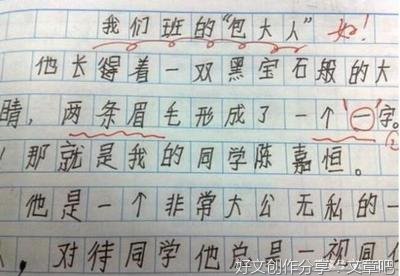 我们班的“包大人” 好!
他长得着一双黑宝石般的大
睛，两条眉毛形成了一个'一'字。
那就是我的同学陈嘉恒。
他是一个非常大公无私的一
，对待同学他总是一视同仁
好文创作分享－文章吧